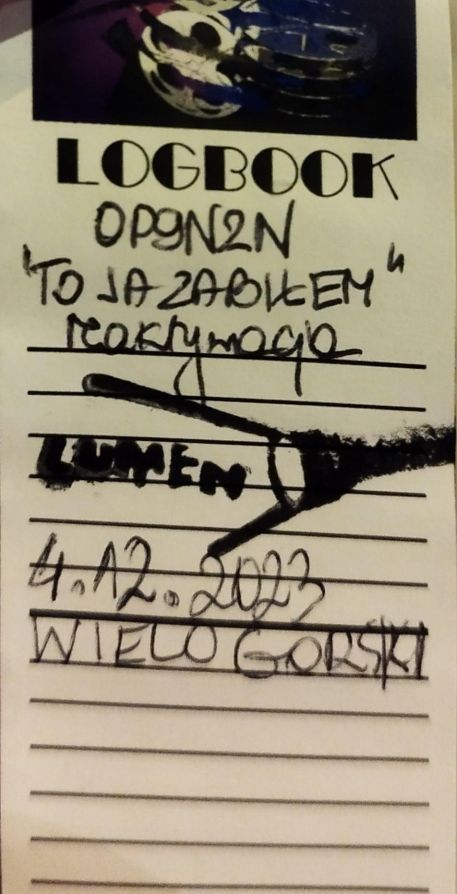 LOGBOOK
OP9N2N
"TO JA ZABIŁEM"
reaktywacja
LUMEN
4.12.2023
WIELOGÓRSKI